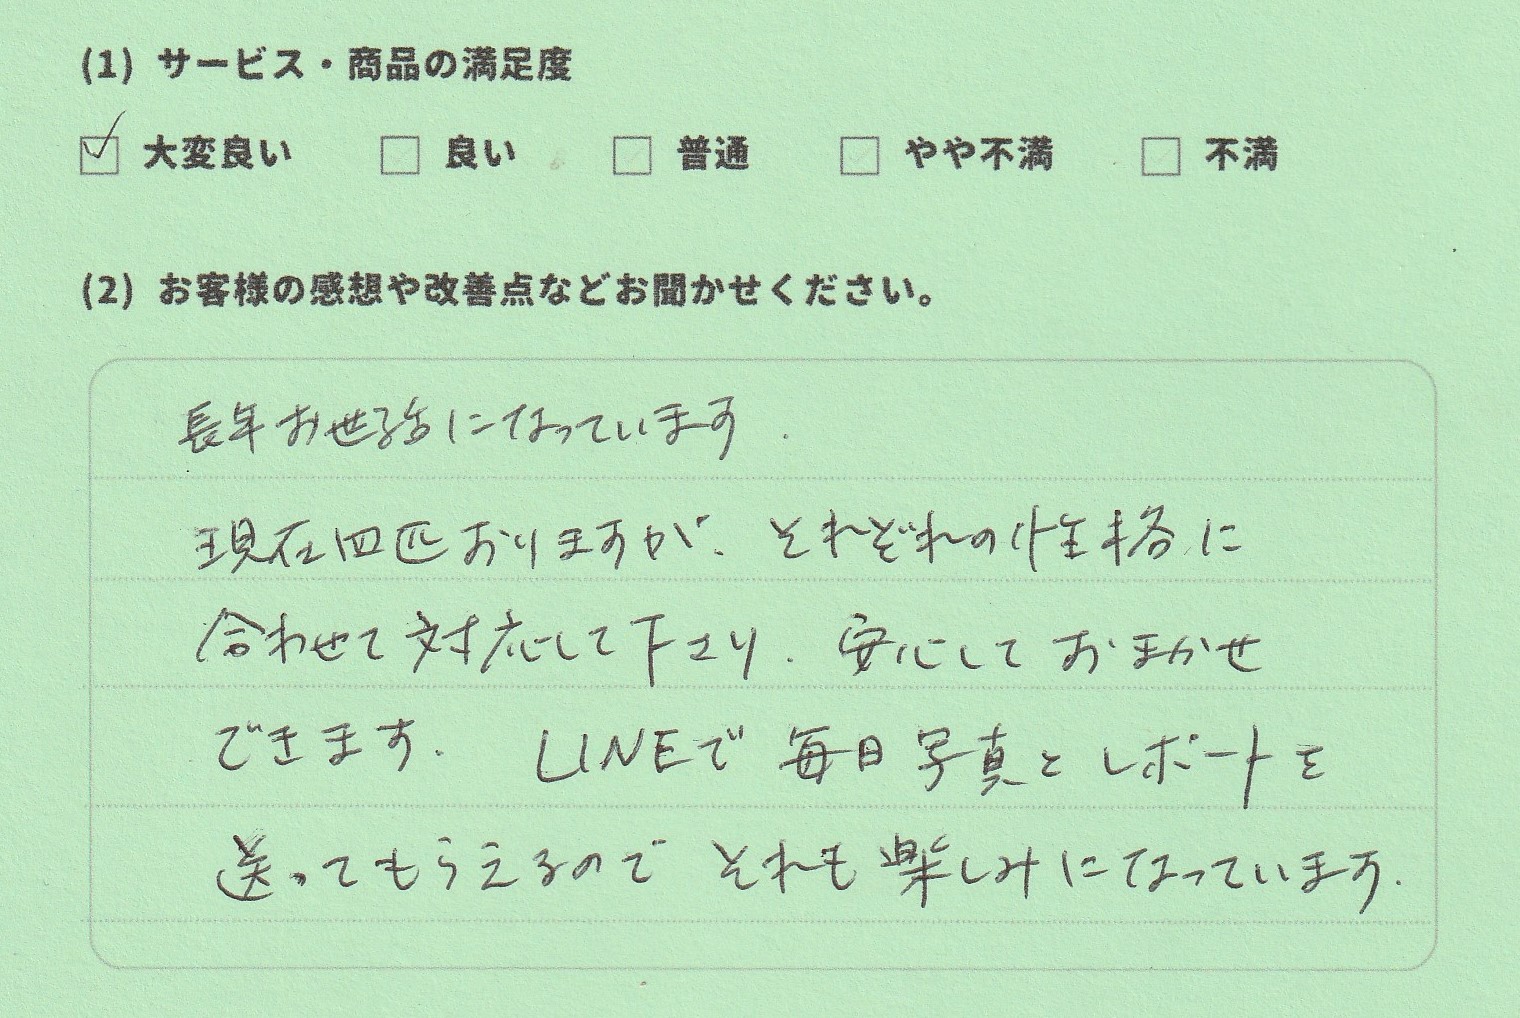 (1) サービス・商品の満足度
大変良い 良い 普通 やや不満 不満
(2) お客様の感想や改善点などお聞かせください。
長年お世話になっています.
現在四匹おりますが、それぞれの性格に
合わせて対応して下さり、安心しておまかせ
できます. LINEで毎日写真とレポートを
送ってもらえるのでそれも楽しみになっています.